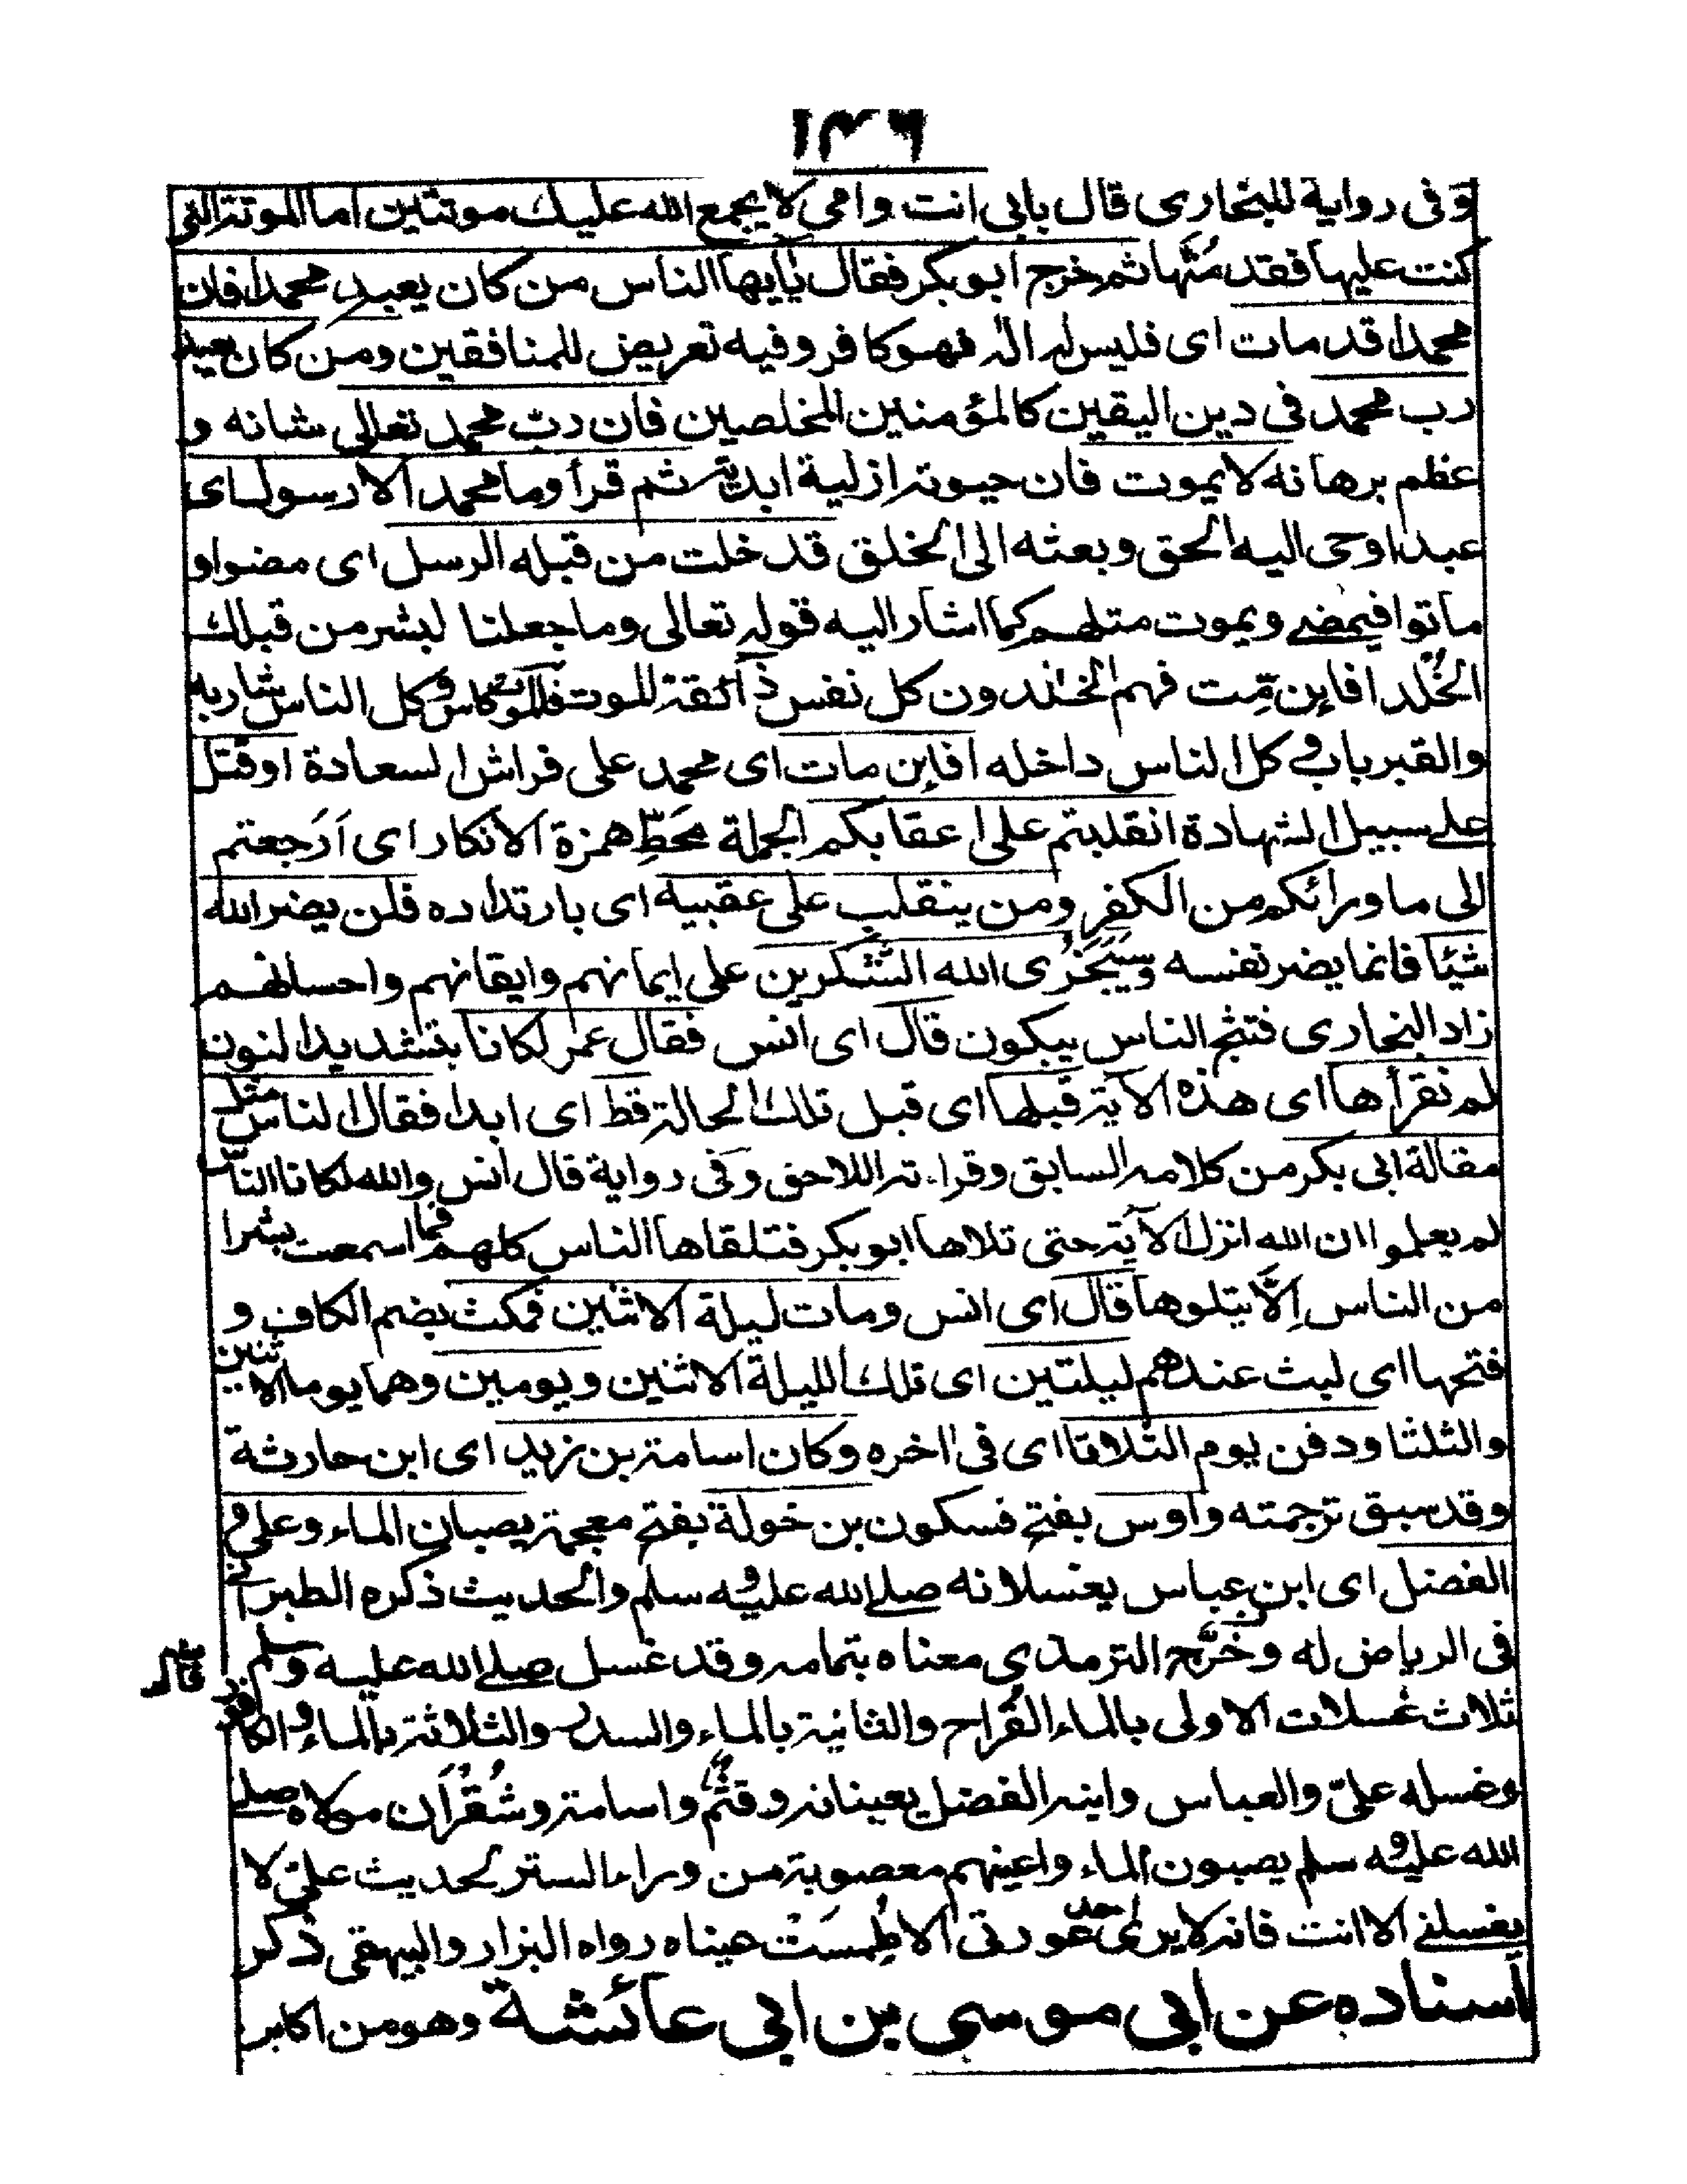 ١٣٦
وفى رواية للبخارى قال بابى انت وامى لا يجمع الله عليك موتتين اما الموتة التى
كنت عليها فقد مُتَّها ثم خرج ابو بكر فقال يٰايها الناس من كان يعبد محمدا فان
محمدا قد مات اى فليس له اله فهو كافر وفيه تعريض للمنافقين ومن كان يعبد
رب محمد فى دين اليقين كالمؤمنين المخلصين فان ربّ محمد تعالى شانه و
عظم برهانه لا يموت فان حيوته ازلية ابدية ثم قرأ وما محمد الا رسول اى
عبد اوحى اليه الحق وبعثه الى الخلق قد خلت من قبله الرسل اى مضوا و
ماتوا فيمضے ويموت مثلهم كما اشار اليه قوله تعالى وما جعلنا لبشر من قبلك
الخُلْد افاين مِّت فهم الخٰلدون كل نفس ذآئقة الموت فالموت كاس وكل الناس شاربه
والقبر باب وكل الناس داخله افاين مات اى محمد على فراش السعادة او قتل
علے سبيل الشهادة انقلبتم على اعقابكم الجملة مَحَطِّ همزة الانكار اى اَرَجعتم
الى ما ورائكم من الكفر ومن ينقلب على عقبيه اى بارتداده فلن يضر الله
شيئا فانما يضر نفسه وَسَيَجْزِى الله الشٰكرين على ايمانهم وايقانهم واحسانهم
زاد البخارى فنشج الناس يبكون قال اى انس فقال عمر لكانا بتشديد النون
لم نقرأها اى هذه الآية قبلها اى قبل تلك الحالة قط اى ابدا فقال الناس مثل
مقالة ابى بكر من كلامه السابق وقراءته اللاحق وفى رواية قال انس والله لكانا الناس
لم يعلموا ان الله انزل الآية حتى تلاها ابو بكر فتلقاها الناس كلهم فما اسمعت بشرا
من الناس اِلَّا يتلوها قال اى انس ومات ليلة الاثنين فمكث بضم الكاف و
فتحها اى لبث عندهم ليلتين اى تلك الليلة الاثنين ويومين وهما يوما الاثنين
والثلثا ودفن يوم الثلاثا اى فى اخره وكان اسامة بن زيد اى ابن حارثة
وقد سبق ترجمته واوس بفتح فسكون بن خولة بفتح معجمة يصبان الماء وعلى و
الفضل اى ابن عباس يغسلانه صلے الله عليه وسلم والحديث ذكره الطبرانے
فى الرياض له وخَرَّج الترمذى معناه بتمامه وقد غسل صلے الله عليه وسلم
ثلاث غسلات الاولى بالماء القُراح والثانية بالماء والسدر والثلاثة بالماء والكافور
وغسله علىّ والعباس وابنه الفضل يعينانه وقثم واسامة وشُقْرَان مولاه صلے
الله عليه وسلم يصبون الماء واعينهم معصوبة من وراء الستر لحديث علىّ لا
يغسلنے الا انت فانه لا يرى احد عورتى الا طُمِسَتْ عيناه رواه البزار والبيهقى ذكر
اسناده عن ابى موسى بن ابى عائشة وهو من اكابر